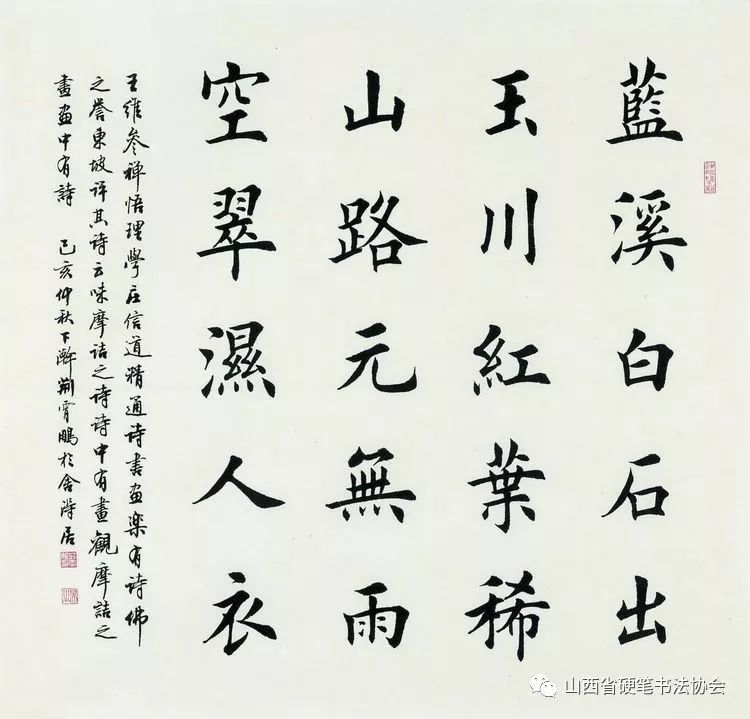 藍溪白石出
玉川紅葉稀
山路元無雨
空翠濕人衣
王維參禅悟理學庄信道精通诗書画楽有诗佛
之誉東坡评其诗云味摩诘之诗诗中有畫觀摩詰之
畫画中有詩 己亥仲秋下澣荆霄鵬於舍得居
山西省硬笔书法协会